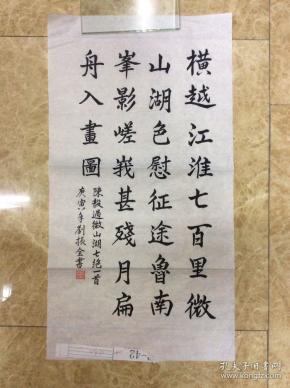 橫越江淮七百里微
山湖色慰征途魯南
峯影嵯峩甚殘月扁
舟入畫圖
陳毅過微山湖七絕一首
庚寅年劉振金書
孔夫子旧书网